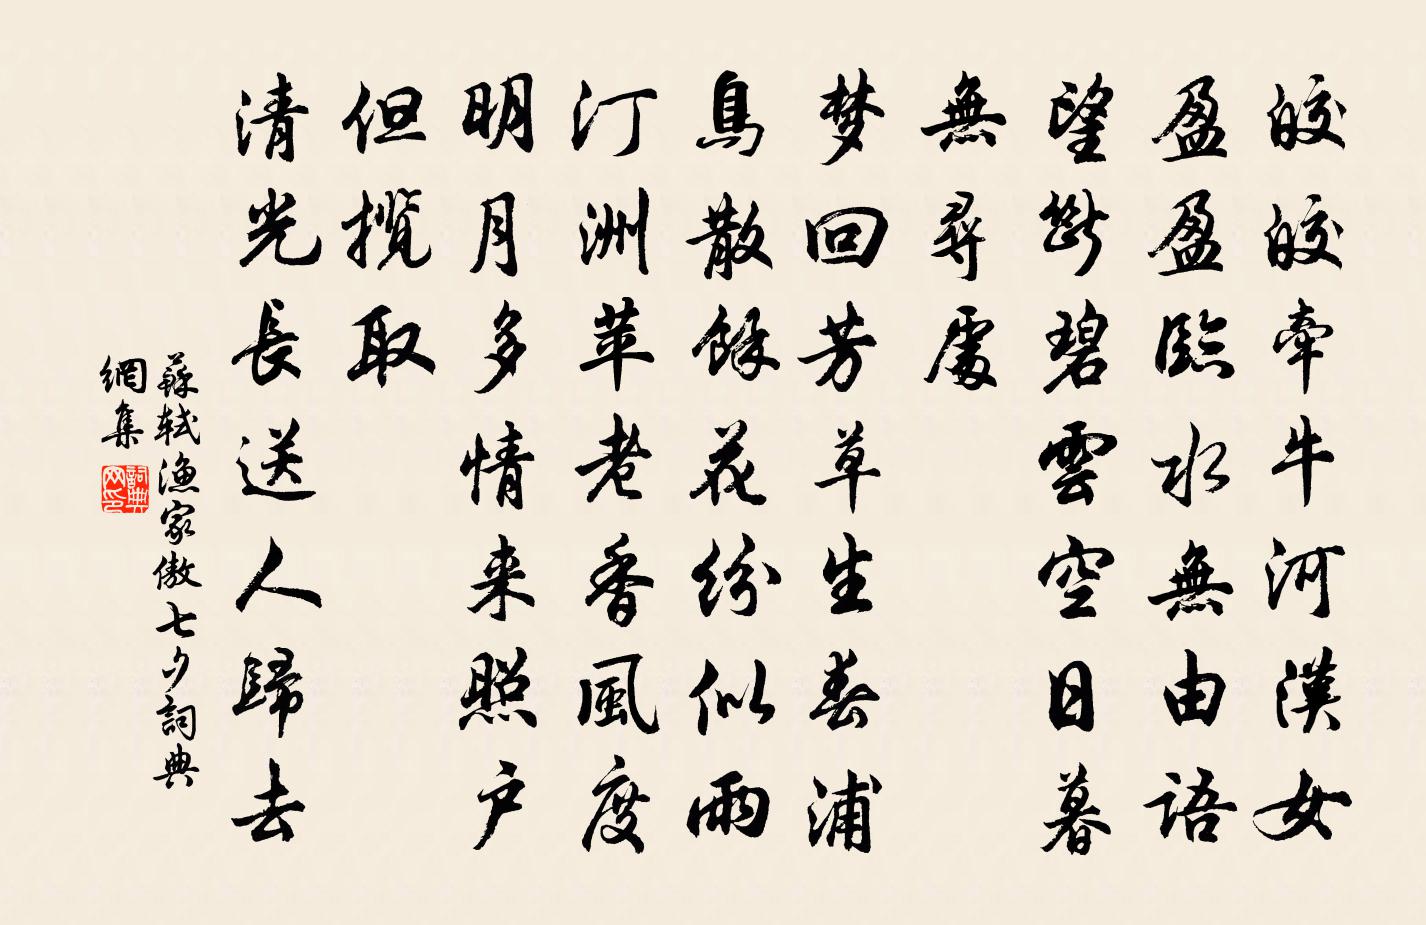 皎皎牽牛河漢女
盈盈臨水無由語
望斷碧雲空日暮
無尋處
梦回芳草生春浦
鳥散餘花紛似雨
汀洲苹老香風度
明月多情来照户
但攬取
清光長送人歸去
蘇軾漁家傲七夕詞典
網集
詞典網印